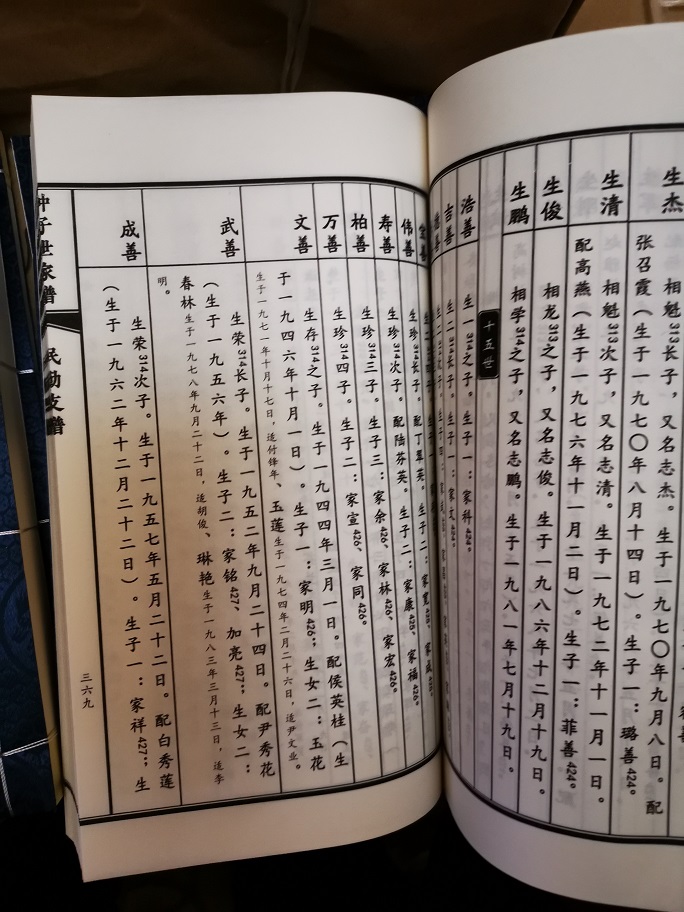 生杰 相魁313长子，又名志杰。生于一九七〇年九月八日。配
张召霞（生于一九七〇年八月十四日）。生子一：璐善424。
生清 相魁313次子，又名志清。生于一九七二年十一月一日。
配高燕（生于一九七六年十一月二日）。生子一：菲善424。
生俊 相龙313之子，又名志俊。生于一九八六年十二月十九日。
生鹏 相学314之子，又名志鹏。生于一九八一年七月十九日。
十五世
浩善 生一314之子。生子一：家科424。
吉善 生二314长子。生子一：家文424。
伟善 生珍314长子。配丁翠英。生子二：家宽
寿善 生珍314次子。配陆芬英。生子二：家康425、家福426。
柏善 生珍314三子。生子三：家余426、家林426、家宏426。
万善 生珍314四子。生子二：家宣426、家同426。
文善 生存314之子。生于一九四四年三月一日。配侯英桂（生
于一九四六年十月一日）。生子一：家明426；生女二：玉花
生于一九七一年十月十七日，适付绛年、玉莲生于一九七四年二月二十六日，适尹文业。
武善 生荣314长子。生于一九五二年九月二十四日。配尹秀花
（生于一九五六年）。生子二：家铭427、加亮427；生女二：
春林生于一九七八年九月二十二日，适胡俊、琳艳生于一九八三年三月十三日，适李
明。
成善 生荣314次子。生于一九五七年五月二十二日。配白秀莲
（生于一九六二年十二月二十二日）。生子一：家祥427；生
三六九
世家谱
民勤支谱